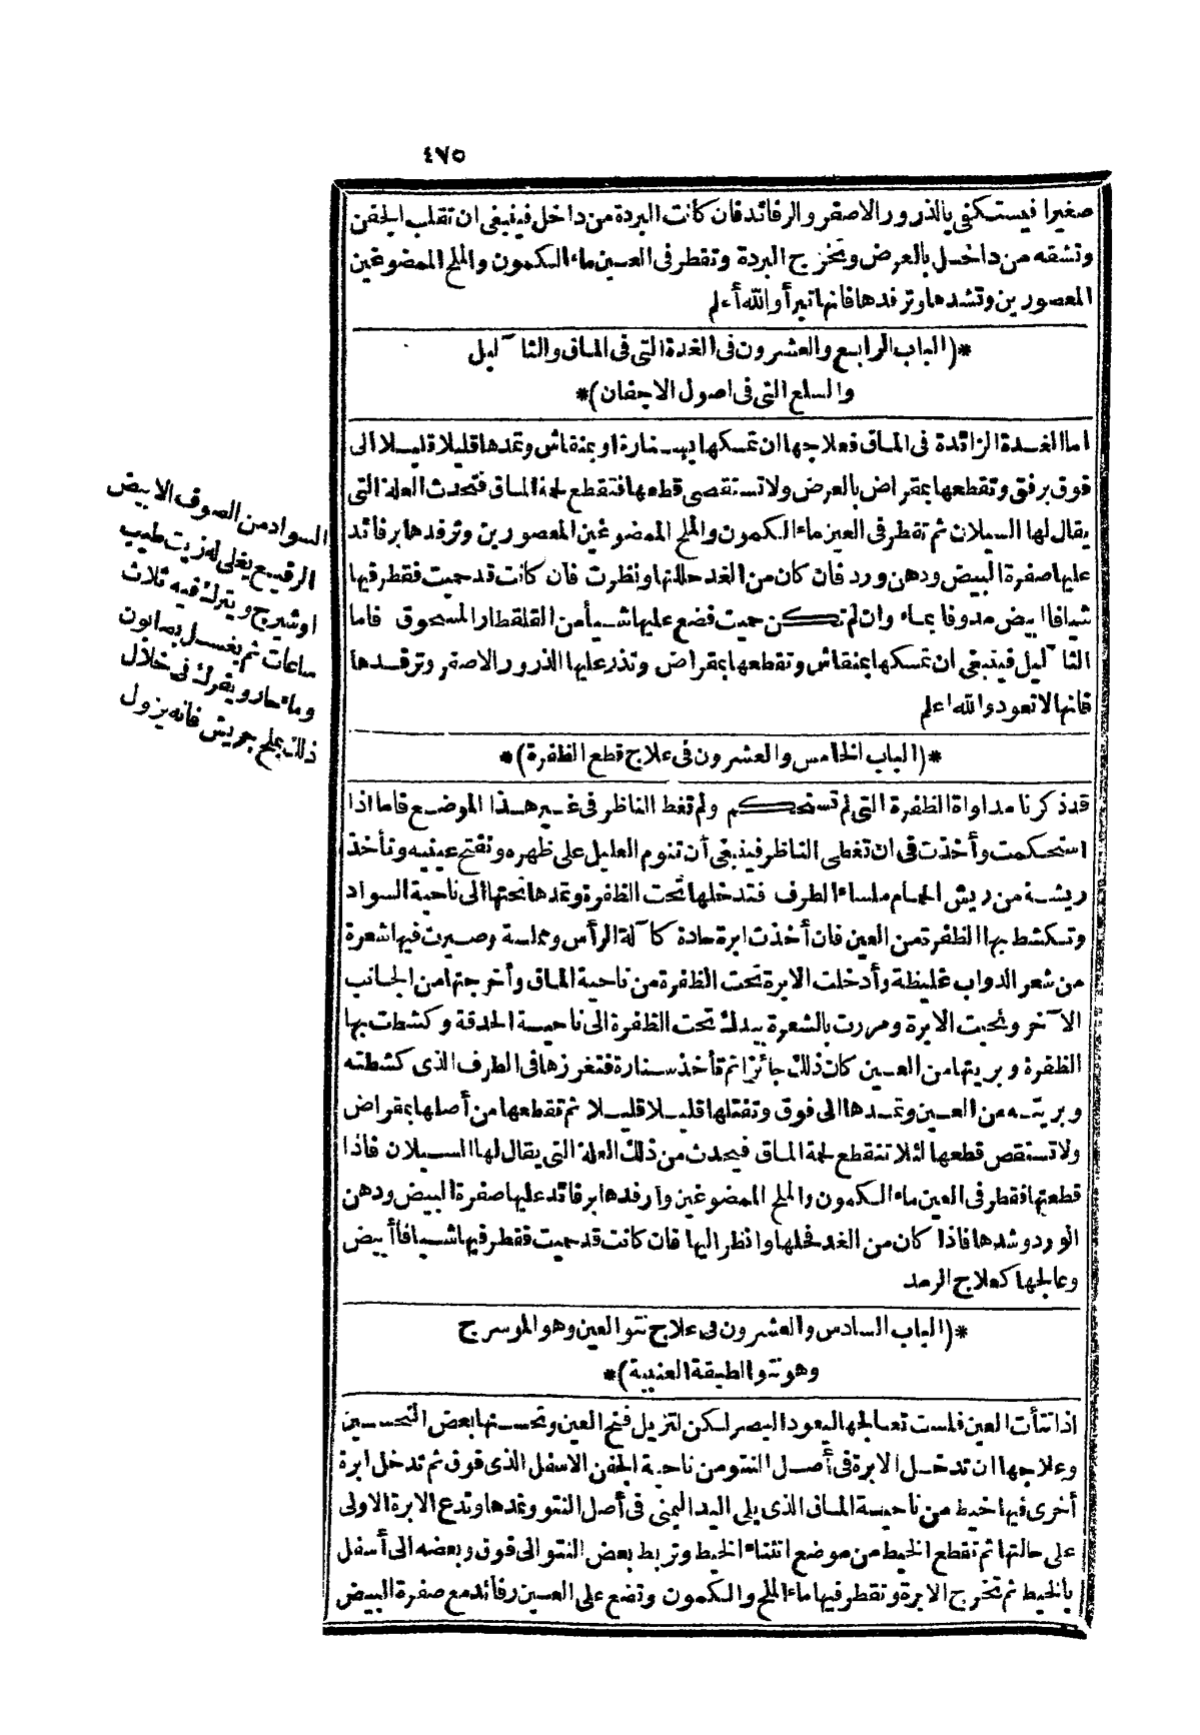 ٤٧٥
صغيرا فيستكفي بالذرور الاصفر والرفائد فان كانت البردة من داخل فينبغي ان تقلب الجفن
وتشقه من داخل بالعرض ويخرج البردة وتقطر في العين ماء الكمون والملح الممضوغين
المعصورين وتشدها وترفدها فانها تبرأ والله أعلم
*(الباب الرابع والعشرون في الغدة التي في الماق والثآليل
والسلع التي في اصول الاجفان)*
اما الغدة الزائدة في الماق فعلاجها ان تمسكها بسنارة او بمنقاش وتمدها قليلا قليلا الى
فوق برفق وتقطعها بمقراض بالعرض ولا تستقصي قطعها فتقطع لحمة الماق فتحدث العلة التي
يقال لها السيلان ثم تقطر في العين ماء الكمون والملح الممضوغين المعصورين وترفدها برفائد
عليها صفرة البيض ودهن ورد فان كان من الغد حللتها ونظرت فان كانت قد حميت فقطر فيها
شيافا ابيض مدوفا بماء وان لم تكن حميت فضع عليها شيأ من القلقطار المسحوق فاما
الثآليل فينبغي ان تمسكها بمنقاش وتقطعها بمقراض وتذر عليها الذرور الاصفر وترفدها
فانها لا تعود والله اعلم
*(الباب الخامس والعشرون في علاج قطع الظفرة)*
قد ذكرنا مداواة الظفرة التي لم تستحكم ولم تغط الناظر في غير هذا الموضع فاما اذا
استحكمت وأخذت في ان تغطى الناظر فينبغي أن تنوم العليل على ظهره وتفتح عينيه وتأخذ
ريشة من ريش الحمام ملساء الطرف فتدخلها تحت الظفرة وتمدها تحتها الى ناحية السواد
وتكشط بها الظفرة من العين فان أخذت ابرة حادة كآلة الرأس ومملسة وصيرت فيها شعرة
من شعر الدواب غليظة وأدخلت الابرة تحت الظفرة من ناحية الماق وأخرجتها من الجانب
الآخر ونحيت الابرة ومررت بالشعرة بيدك تحت الظفرة الى ناحية الحدقة وكشطت بها
الظفرة وبريتها من العين كان ذلك جائزا ثم تأخذ سنارة فتغرزها في الطرف الذي كشطته
وبريته من العين وتمدها الى فوق وتفتلها قليلا قليلا ثم تقطعها من أصلها بمقراض
ولا تستقص قطعها لئلا تنقطع لحمة الماق فيحدث من ذلك العلة التي يقال لها السيلان فاذا
قطعتها فقطر في العين ماء الكمون والملح الممضوغين وارفدها برفائد عليها صفرة البيض ودهن
الورد وشدها فاذا كان من الغد فحلها وانظر اليها فان كانت قد حميت فقطر فيها شيافا أبيض
وعالجها كعلاج الرمد
*(الباب السادس والعشرون في علاج نتو العين وهو الموسرج
وهو نتو الطبقة العنبية)*
اذا نتأت العين فلست تعالجها ليعود البصر لكن لتزيل فتح العين وتحسنها بعض التحسين
وعلاجها ان تدخل الابرة في أصل النتو من ناحية الجفن الاسفل الذي فوق ثم تدخل ابرة
أخرى فيها خيط من ناحية الماق الذي يلي اليد اليمنى في أصل النتو وتمدها وتدع الابرة الاولى
على حالتها ثم تقطع الخيط من موضع انثناء الخيط وتربط بعض النتو الى فوق وبعضه الى أسفل
بالخيط ثم تخرج الابرة وتقطر فيها ماء الملح والكمون وتضع على العين رفائد مع صفرة البيض
السواد من الصوف الابيض
الرفيع يغلى له زيت طيب
او شيرج ويترك فيه ثلاث
ساعات ثم يغسل بصابون
وماء حار ويفرك في خلال
ذلك بملح جريش فانه يزول